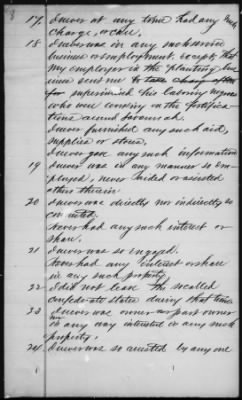 17. I never at any time had any such
charge, or care,
18 I never was in any such service
business or employment, except, that
my employer in the planting business
sent me to take charge
for superintend his laboring negroes
who were working on the fortifica
tions around Savannah.
I never furnished any such aid,
supplies or stores,
I never gave any such information
19 I never was in any manner so em
ployed, never aided or assisted
others therein
20 I never was directly nor indirectly so
Never had any such interest or
share.
21 I never was so engaged.
Never had any interest or share
in any such property.
22 I did not leave the so called
Confederate states during that time
23 I never was owner nor part owner
nor in any way interested in any such
property.
24. I never was so arrested by any one